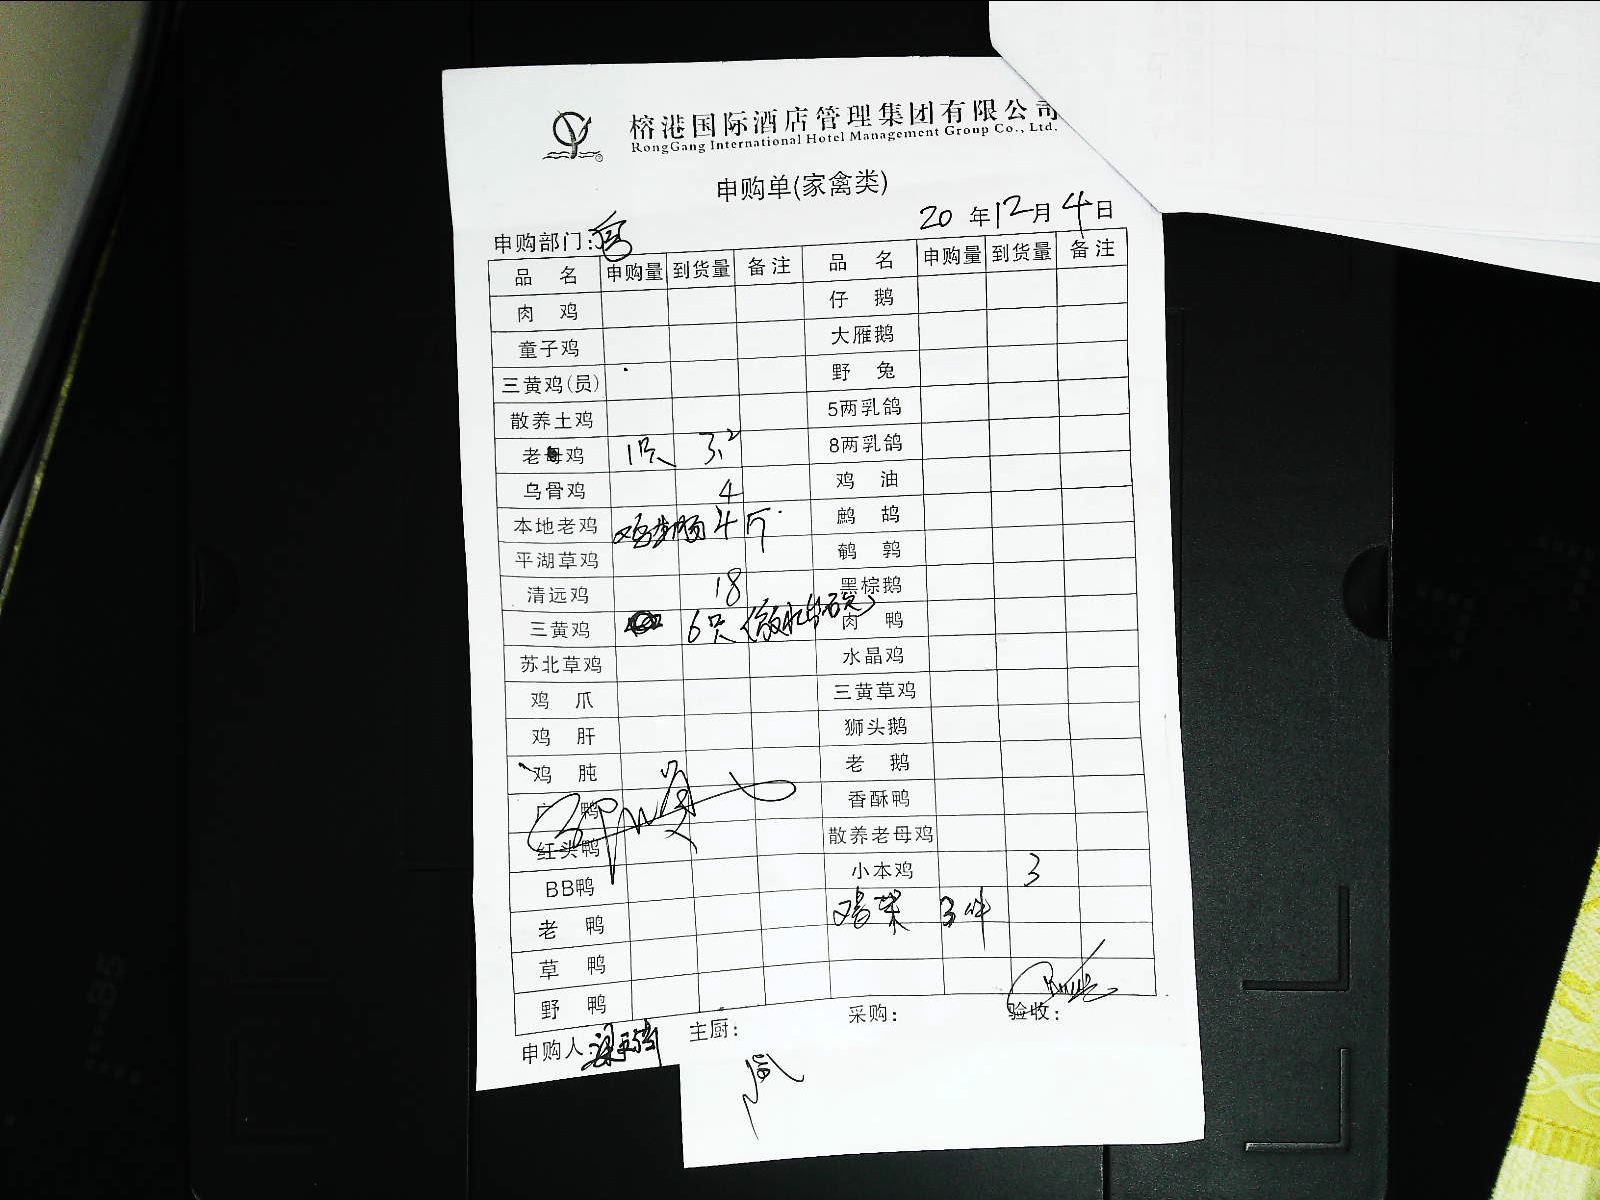 榕港国际酒店管理集团有限公司
RongGang International Hotel Management Group Co., Ltd.
申购单(家禽类)
申购部门:
20 年12月4日
品 名 申购量 到货量 备注 品 名 申购量 到货量 备注
肉 鸡 仔 鹅
童子鸡 大雁鹅
三黄鸡(员) 野 兔
散养土鸡 5两乳鸽
老母鸡 1只 3.2 8两乳鸽
乌骨鸡 4 鸡 油
本地老鸡 鸡 肠 4斤 鹧 鸪
平湖草鸡 鹌 鹑
清远鸡 18 黑棕鹅
三黄鸡 6只 肉 鸭
苏北草鸡 水晶鸡
鸡 爪 三黄草鸡
鸡 肝 狮头鹅
鸡 肫 老 鹅
鸭 香酥鸭
红头鸭 散养老母鸡
BB鸭 小本鸡 3
老 鸭 鸡 3件
草 鸭
野 鸭
申购人: 主厨: 采购: 验收: